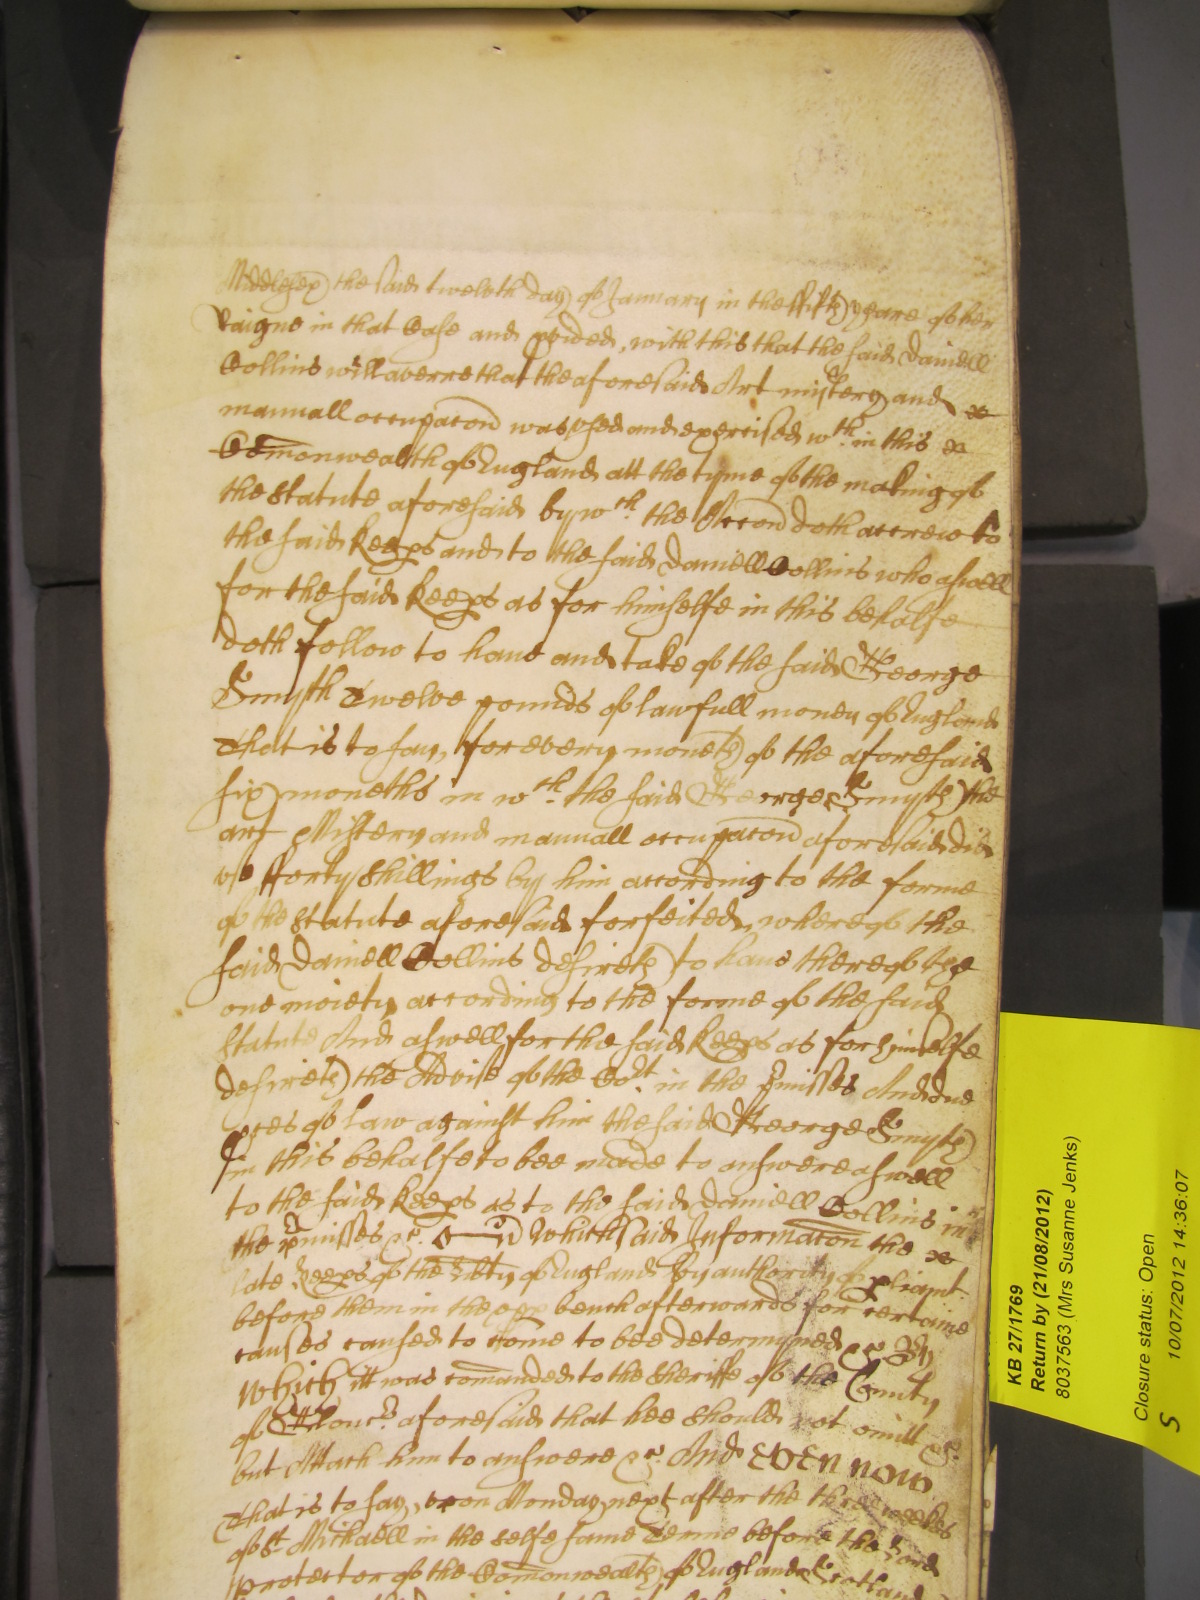 Middlesex the said twelvth day of January in the ffifth yeare of her
Raigne in that Case made and p[ro]vided, with this that the said Daniell
Collins will averre that the aforesaid Art mistery and
manuall occupacon was used and exercised wth in this
Comonwealth of England att the tyme of the making of
the Statute aforesaid by wch the Accon doth accrew to
the said Keeps and to the said Daniell Collins who aswell
for the said Keeps as for himselfe in this behalfe
doth follow to have and take of the said George
Smyth Twelve pounds of lawfull money of England
That is to say, for every moneth of the aforesaid
six moneths in wch the said George Smyth the
art Mistery and manuall occupacon aforesaid did
use fforty shillings by him according to the forme
of the Statute aforesaid forfeited, whereof the
said Daniell Collins desireth to have thereof the
one moiety according to the forme of the said
Statute And aswell for the said Keeps as for himselfe
desireth the Advise of the Cort in the pmisses And due
pces of law against him the said George Smyth
in this behalfe to bee made to answere aswell
to the said Keeps as to the said Daniell Collins in
the pmisses &c. Which said Informacon the
late Keeps of the libty of England By authority of pliamt
before them in the upp bench afterwards for certaine
causes caused to come to bee determyned &c By
which itt was comanded to the Sheriffe of the County
of Glouc aforesaid that hee should not omitt &c.
but Attach him to answere &c. And even now
That is to say, upon Monday next after the three weekes
of St Michaell in the selfe same Terme before the Lord
Protector of the Comonwealth of England Scotland
KB 27/1769
Return by (21/08/2012)
8037563 (Mrs Susanne Jenks)
Closure status: Open
10/07/2012 14:36:07
S